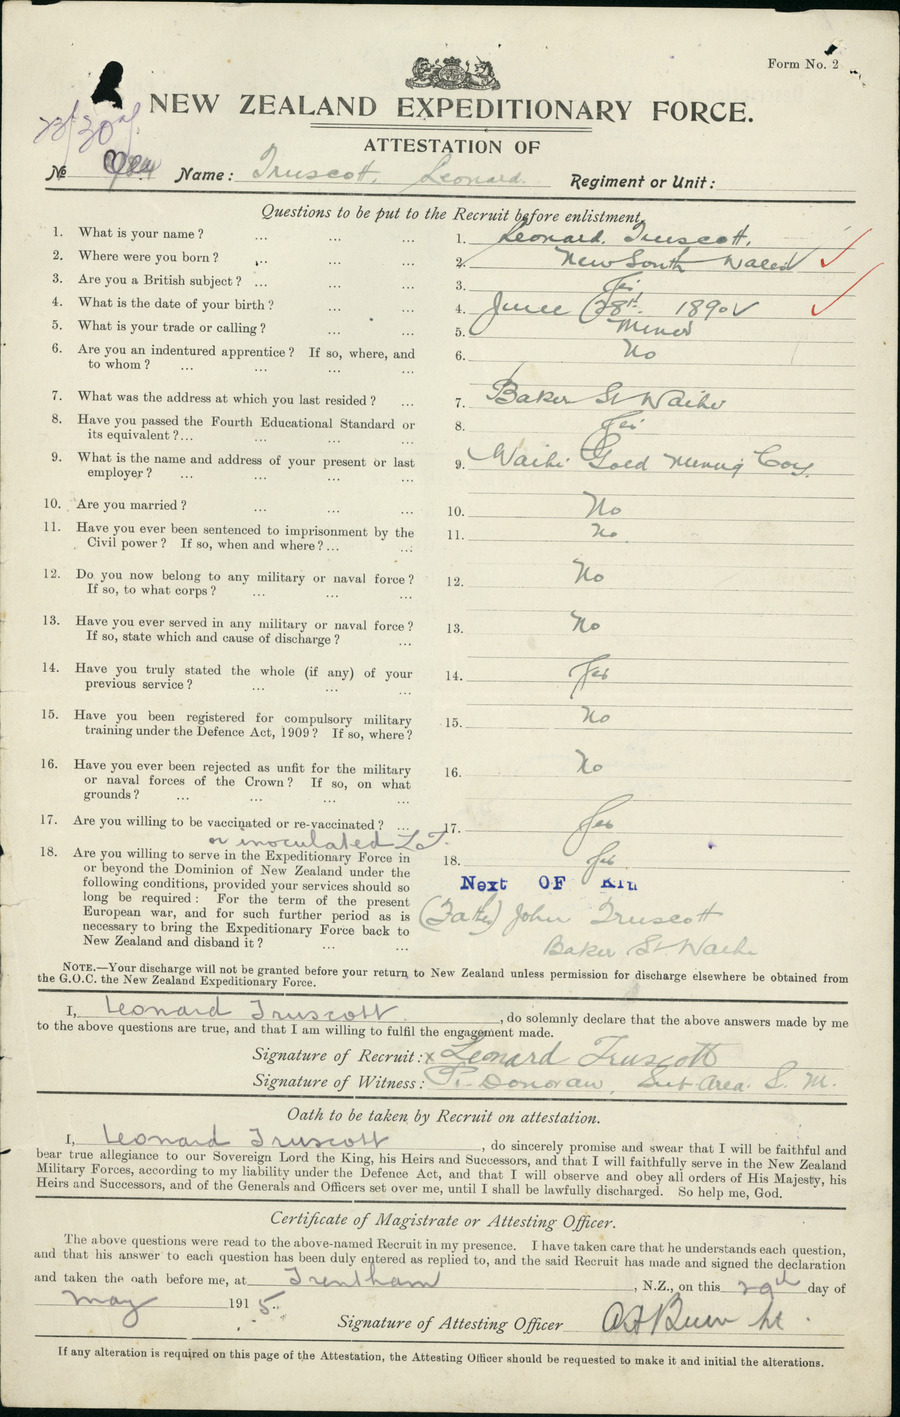 Form No. 2
NEW ZEALAND EXPEDITIONARY FORCE.
ATTESTATION OF
No Name: Truscott, Leonard. Regiment or Unit:
Questions to be put to the Recruit before enlistment.
1. What is your name? ... ... ... 1. Leonard. Truscott.
2. Where were you born? ... ... ... 2. New South Wales
3. Are you a British subject? ... ... ... 3. Yes
4. What is the date of your birth? ... ... 4. June 28th. 1890
5. What is your trade or calling? ... ... 5. Miner
6. Are you an indentured apprentice? If so, where, and 6. No
to whom? ... ... ... ...
7. What was the address at which you last resided? ... 7. Baker St Waihi
8. Have you passed the Fourth Educational Standard or 8. Yes
its equivalent?... ... ... ...
9. What is the name and address of your present or last 9. Waihi Gold Mining Coy.
employer? ... ... ... ...
10. Are you married? ... ... ... 10. No
11. Have you ever been sentenced to imprisonment by the 11. No
Civil power? If so, when and where?... ...
12. Do you now belong to any military or naval force? 12. No
If so, to what corps? ... ... ...
13. Have you ever served in any military or naval force? 13. No
If so, state which and cause of discharge? ...
14. Have you truly stated the whole (if any) of your 14. Yes
previous service? ... ... ...
15. Have you been registered for compulsory military 15. No
training under the Defence Act, 1909? If so, where?
16. Have you ever been rejected as unfit for the military 16. No
or naval forces of the Crown? If so, on what
grounds? ... ... ...
17. Are you willing to be vaccinated or re-vaccinated? ... 17. Yes
or inoculated L T.
18. Are you willing to serve in the Expeditionary Force in 18. Yes
or beyond the Dominion of New Zealand under the
following conditions, provided your services should so
long be required: For the term of the present
European war, and for such further period as is
necessary to bring the Expeditionary Force back to
New Zealand and disband it? ... ...
Next OF Kin
(Father) John Truscott
Baker St Waihi
NOTE.—Your discharge will not be granted before your return to New Zealand unless permission for discharge elsewhere be obtained from
the G.O.C. the New Zealand Expeditionary Force.
I, Leonard Truscott, do solemnly declare that the above answers made by me
to the above questions are true, and that I am willing to fulfil the engagement made.
Signature of Recruit: x Leonard Truscott
Signature of Witness: Donovan, Sub-Area S. M.
Oath to be taken by Recruit on attestation.
I, Leonard Truscott, do sincerely promise and swear that I will be faithful and
bear true allegiance to our Sovereign Lord the King, his Heirs and Successors, and that I will faithfully serve in the New Zealand
Military Forces, according to my liability under the Defence Act, and that I will observe and obey all orders of His Majesty, his
Heirs and Successors, and of the Generals and Officers set over me, until I shall be lawfully discharged. So help me, God.
Certificate of Magistrate or Attesting Officer.
The above questions were read to the above-named Recruit in my presence. I have taken care that he understands each question,
and that his answer to each question has been duly entered as replied to, and the said Recruit has made and signed the declaration
and taken the oath before me, at Trentham, N.Z., on this 29th day of
May 1915.
Signature of Attesting Officer
If any alteration is required on this page of the Attestation, the Attesting Officer should be requested to make it and initial the alterations.